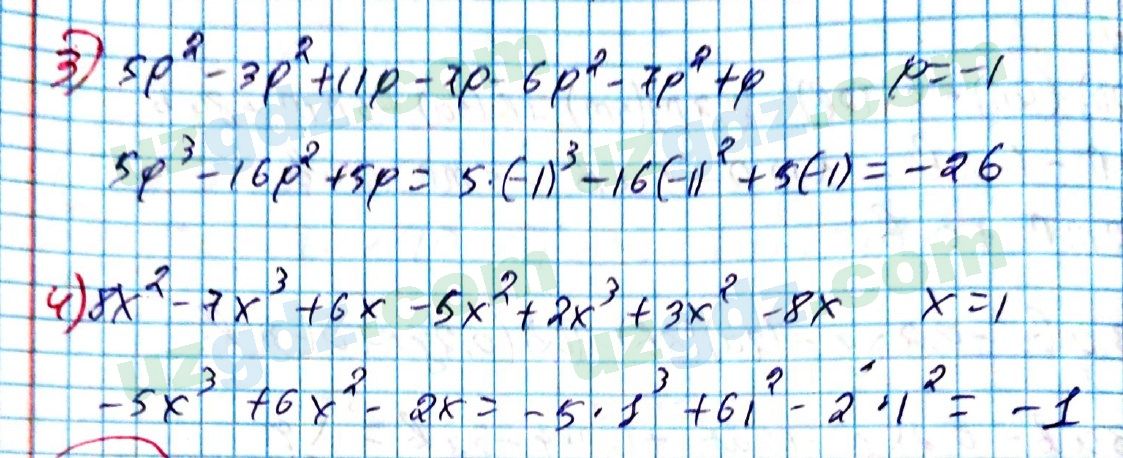 3) 5p² - 3p² + 11p - 7p - 6p² - 7p² + p p = -1
5p³ - 16p² + 5p = 5·(-1)³ - 16(-1)² + 5(-1) = -26
4) 8x² - 7x³ + 6x - 5x² + 2x³ + 3x² - 8x x = 1
-5x³ + 6x² - 2x = -5·1³ + 61² - 2·1² = -1
uzgdz.com
uzgdz.com
uzgdz.com
uzgdz.com